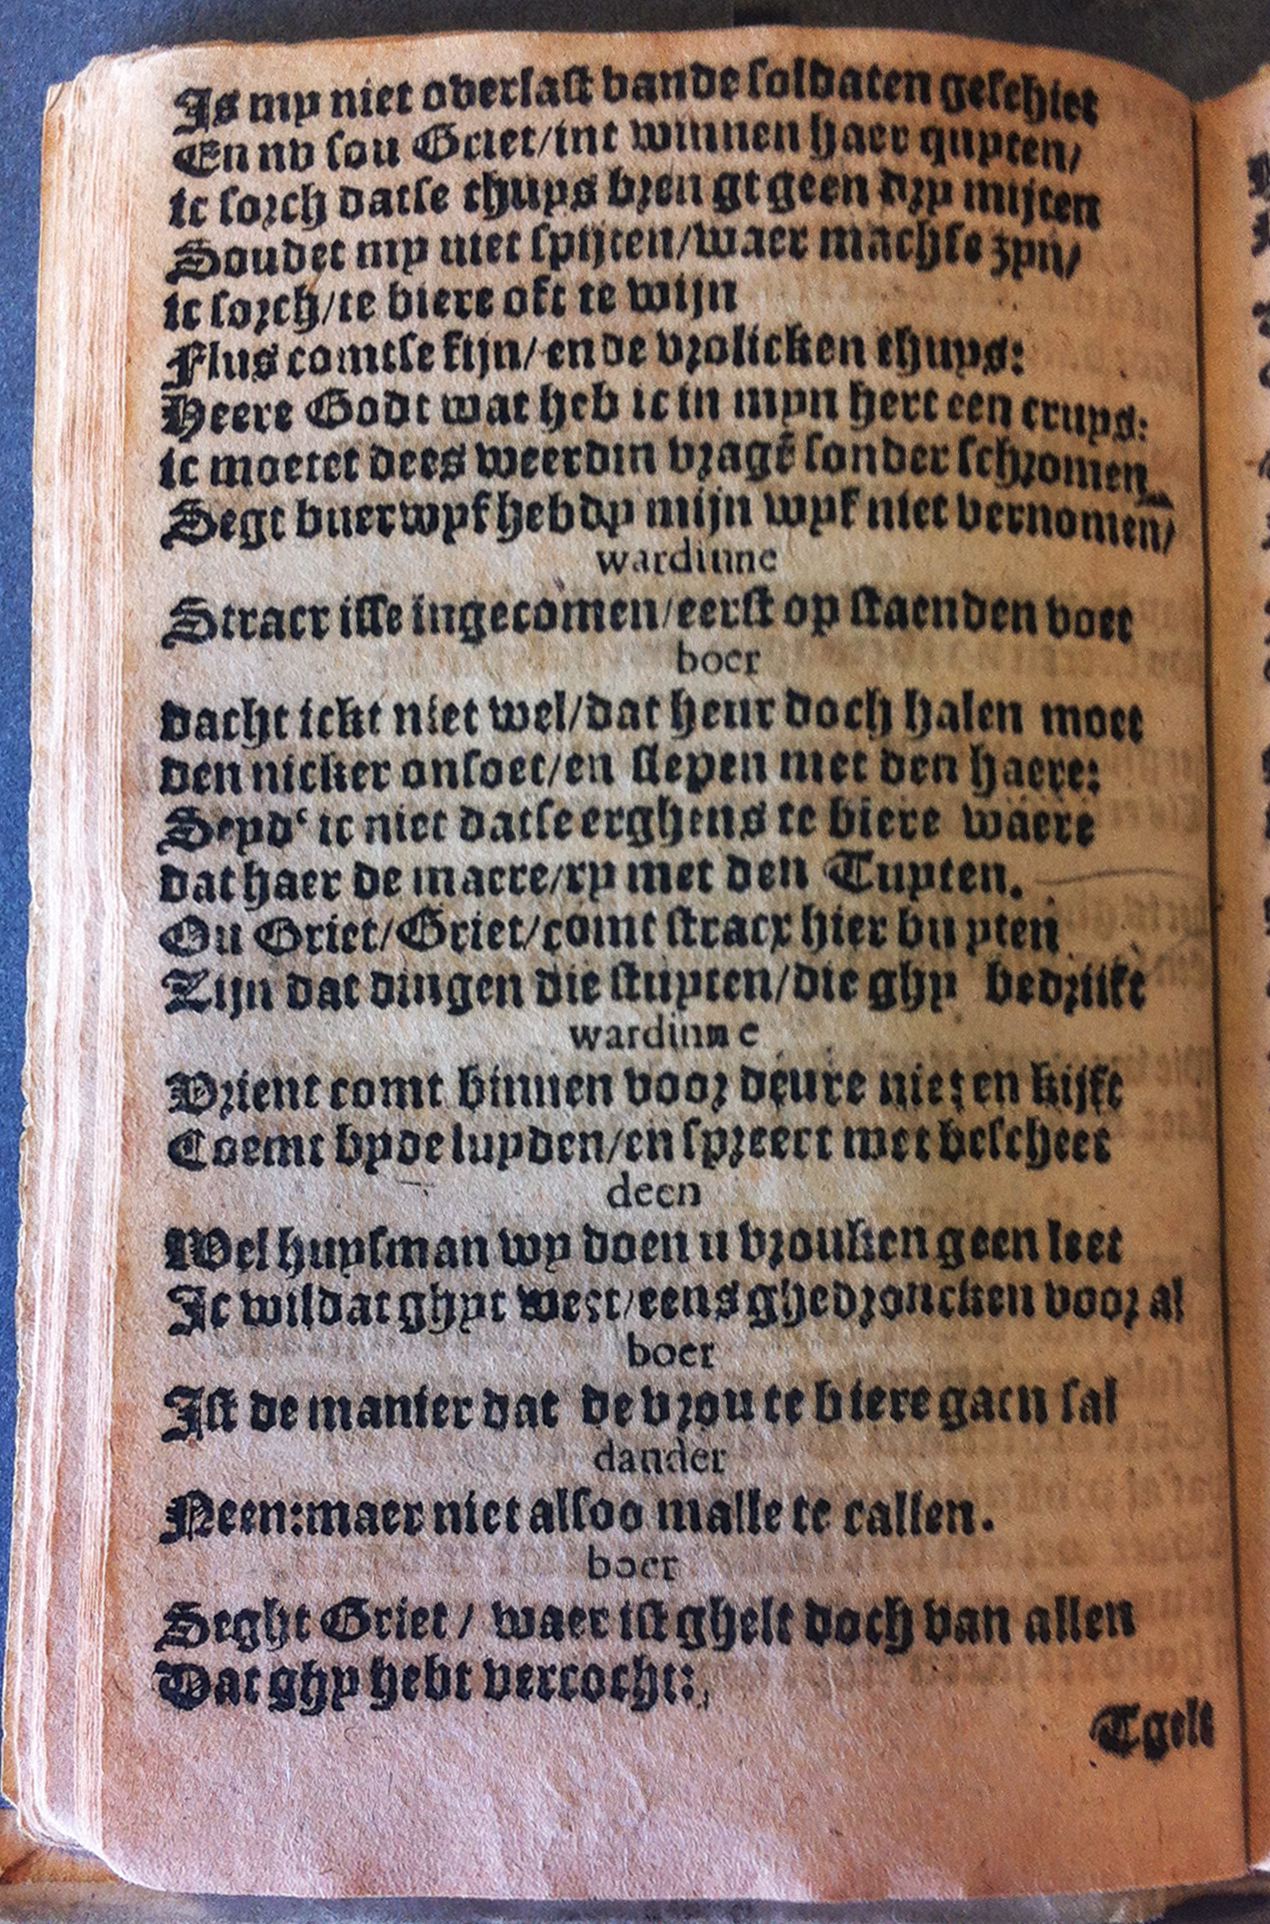 Is my niet overlast vande soldaten geschiet
En nv sou Griet/int winnen haer quyten/
ic sorch datse thuys brengt geen dry mijten
Soudet my niet spijten/waer machse zyn/
ic sorch/te biere oft te wijn
Flus comtse fijn/ende vrolicken thuys:
Heere Godt wat heb ic in myn hert een cruys:
ic moetet dees weerdin vragē sonder schromen
Segt buerwyf hebdy mijn wyf niet vernomen/
wardinne
Stracx isse ingecomen/eerst op staenden voet
boer
dacht ickt niet wel/dat heur doch halen moet
den nicker onsoet/en slepen met den haere:
Seyd' ic niet datse erghens te biere waere
dat haer de marre/ry met den Tuyten.
Ou Griet/Griet/comt stracx hier buyten
Zijn dat dingen die stuyten/die ghy bedrijft
wardinne
Vrient comt binnen voor deure niet en kijft
Coemt byde luyden/en spreect met bescheet
deen
Wel huysman wy doen u vrouken geen leet
Ic wil dat ghyt weet/eens ghedroncken voor al
boer
Ist de manier dat de vrou te biere gaen sal
dander
Neen:maer niet alsoo malle te callen.
boer
Seght Griet/ waer ist ghelt doch van allen
Dat ghy hebt vercocht:
Tgelt